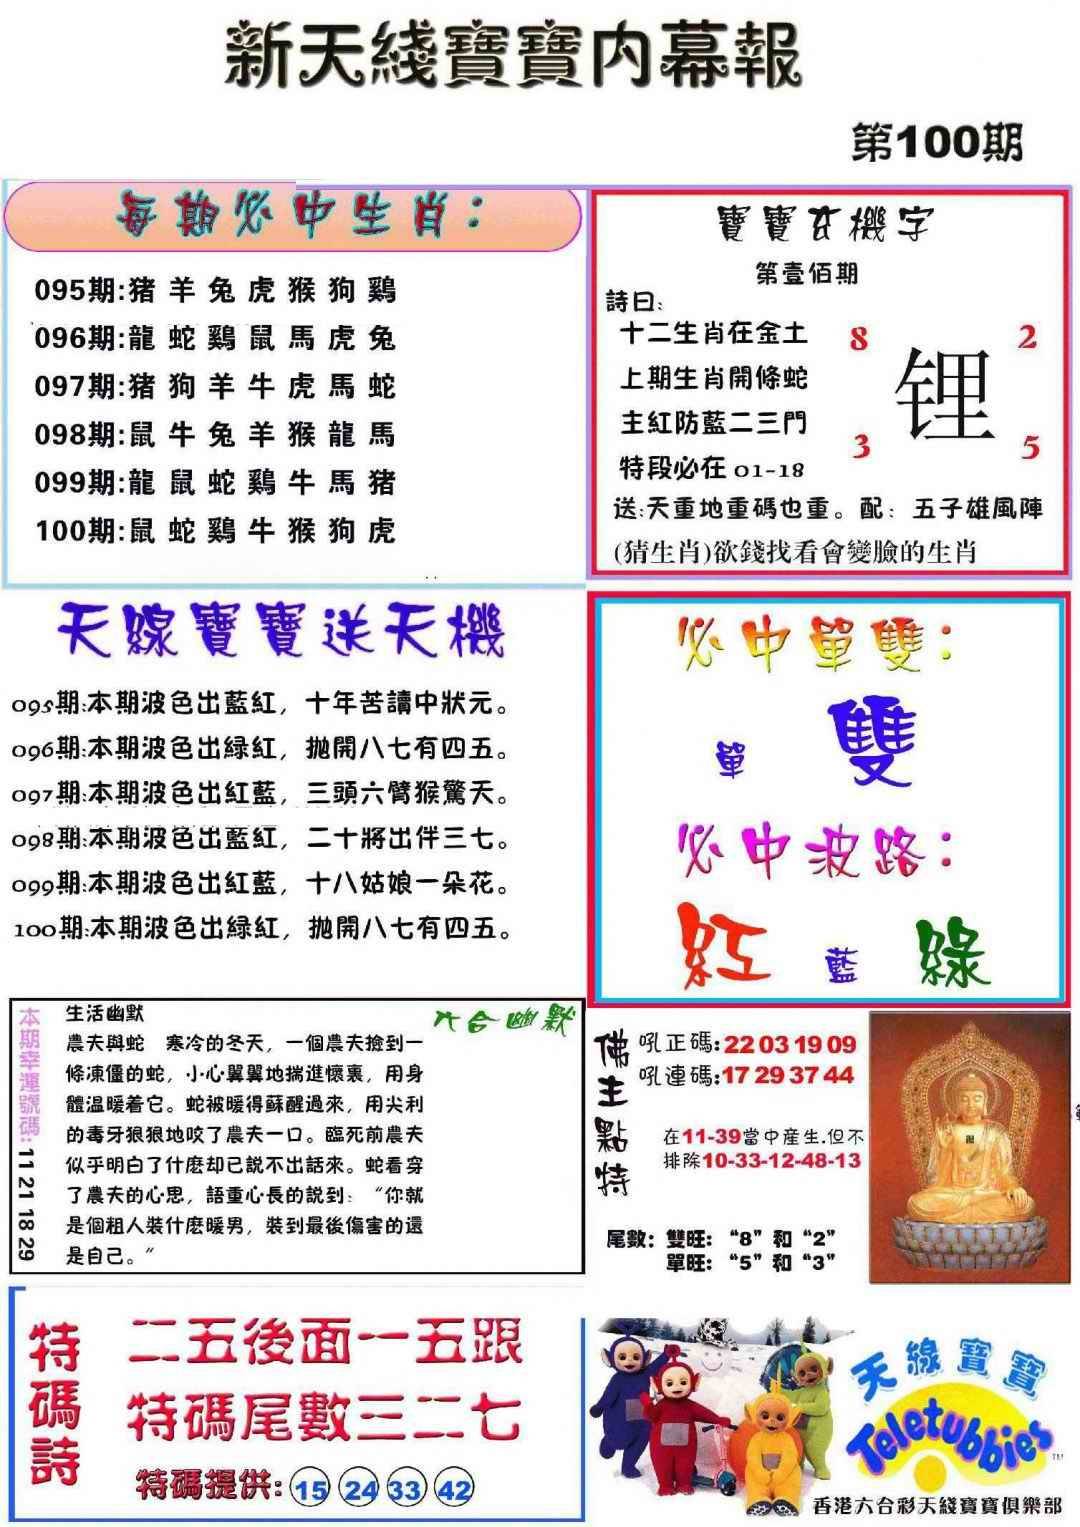 新天綫寶寶内幕報
第100期
每期必中生肖：
095期:猪羊兔虎猴狗鷄
096期:龍蛇鷄鼠馬虎兔
097期:猪狗羊牛虎馬蛇
098期:鼠牛兔羊猴龍馬
099期:龍鼠蛇鷄牛馬猪
100期:鼠蛇鷄牛猴狗虎
寶寶玄機字
第壹佰期
詩曰:
十二生肖在金土
上期生肖開條蛇
主紅防藍二三門
特段必在 01-18
8 2
锂
3 5
送:天重地重碼也重。配：五子雄風陣
(猜生肖)欲錢找看會變臉的生肖
天線寶寶送天機
095期:本期波色出藍紅，十年苦讀中狀元。
096期:本期波色出緑紅，拋開八七有四五。
097期:本期波色出紅藍，三頭六臂猴驚天。
098期:本期波色出藍紅，二十將出伴三七。
099期:本期波色出紅藍，十八姑娘一朵花。
100期:本期波色出緑紅，拋開八七有四五。
必中單雙：
單 雙
必中波路：
紅 藍 綠
本期幸運號碼:11 21 18 29
六合幽默
生活幽默
農夫與蛇　寒冷的冬天，一個農夫撿到一
條凍僵的蛇，小心翼翼地揣進懷裏，用身
體温暖着它。蛇被暖得蘇醒過來，用尖利
的毒牙狠狠地咬了農夫一口。臨死前農夫
似乎明白了什麽却已説不出話來。蛇看穿
了農夫的心思，語重心長的説到：“你就
是個租人裝什麽暖男，裝到最後傷害的還
是自己。”
佛主點特
吼正碼:22 03 19 09
吼連碼:17 29 37 44
在11-39當中産生.但不
排除10-33-12-48-13
尾數：雙旺：“8”和“2”
單旺：“5”和“3”
特碼詩
二五後面一五跟
特碼尾數三二七
特碼提供: 15 24 33 42
天線寶寶
Teletubbies
TM
香港六合彩天綫寶寶俱樂部